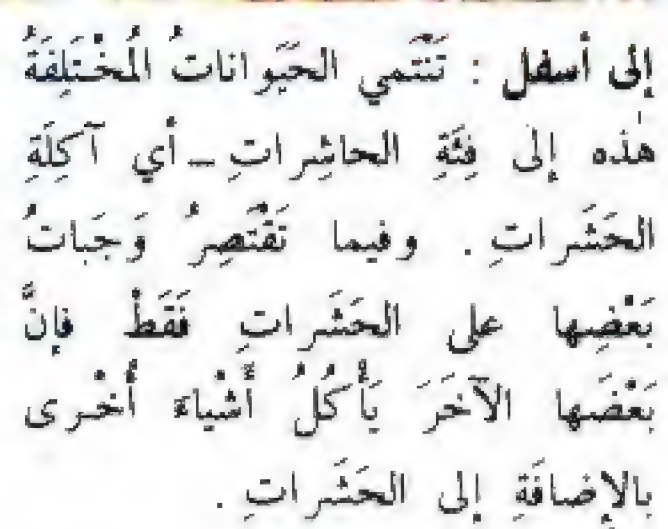 إلى أسفل : تَنْتَمي الحَيَواناتُ المُخْتَلِفَةُ
هٰذه إلى فِئَةِ الحاشِراتِ ــ أي آكِلَةِ
الحَشَراتِ . وفيما تَقْتَصِرُ وَجَباتُ
بَعْضِها على الحَشَراتِ فَقَطْ فإنَّ
بَعْضَها الآخَرَ يَأْكُلُ أَشْياءَ أُخْرى
بالإضافَةِ إلى الحَشَراتِ .